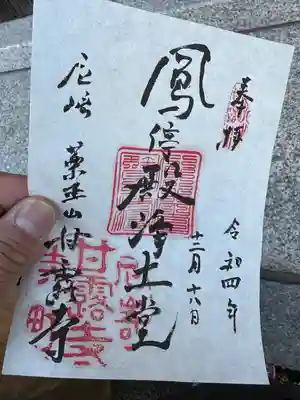 奉拝
令和四年
十二月十八日
鳳停殿
浄土堂
尼崎 薬王山甘露寺
甘露